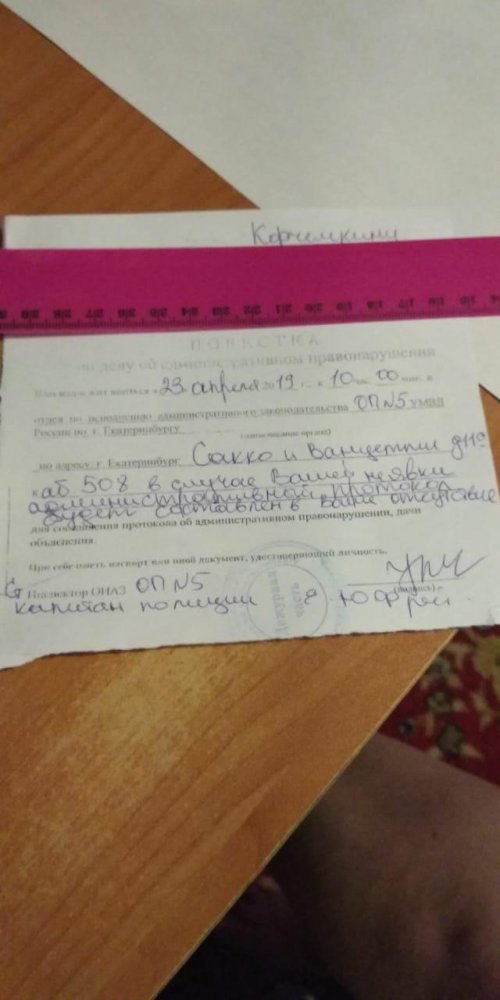 Корчемкину
ПОВЕСТКА
по делу об административном правонарушении
Вам надлежит явиться « 23 » апреля 2019 г. в 10 час. 00 мин. в
отдел по исполнению административного законодательства ОП №5 УМВД
России по г. Екатеринбургу
(наименование органа)
по адресу: г. Екатеринбург Сакко и Ванцетти д
к аб 508 в случае Вашей неявки
административный протокол
будет составлен в Ваше отсутствие
для составления протокола об административном правонарушении, дачи
объяснения.
При себе иметь паспорт или иной документ, удостоверяющий личность.
Ст Инспектор ОИАЗ ОП №5
(подпись)
капитан полиции